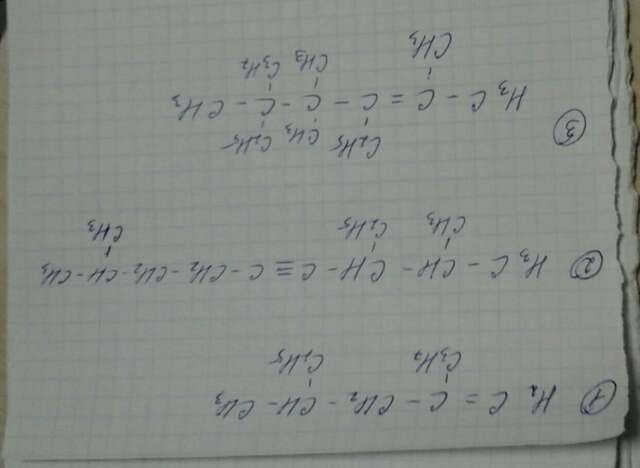 ① H₂C = C - CH₂ - CH - CH₃
C₃H₇ C₂H₅
② H₃C - CH - CH - C ≡ C - CH₂ - CH₂ - CH - CH₃
CH₃ C₂H₅ CH₃
③ C₂H₅ CH₃ C₂H₅
H₃C - C = C - C - C - CH₃
CH₃ CH₃ C₃H₇